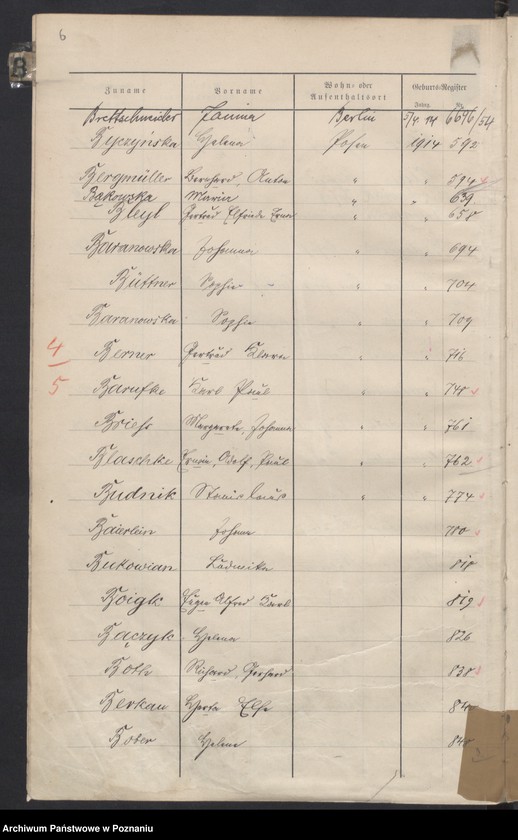 6
B
Zuname Vorname Wohn- oder Aufenthaltsort Geburts-Register
Jahrg. Nr.
Brettschneider Janina Berlin 5/4 14 6646/54
Byczyńska Helena Posen 1914 592
Bergmüller Bernhard, Anton " " 594
Bąkowska Maria " " 639
Bleyl Gertrud Elfriede Erna " " 658
Baranowska Johanna " " 694
Büttner Sophie " " 704
Baranowska Sophie " " 709
4 Berner Gertrud Klara " " 716
5 Barufke Karl Paul " " 748
Briehs Margarete, Johanna " " 761
Blaschke Erwin, Adolf, Paul " " 762
Budnik Stanislaus " " 774
Bäuerlein Johann 780
Bukowian Ludwika 818
Boigk Adolf Alfred Karl 819
Bączyk Helena 826
Both Richard, Gerhard 838
Berkau Herta Else 84
Bober Helene 848
Archiwum Państwowe w Poznaniu